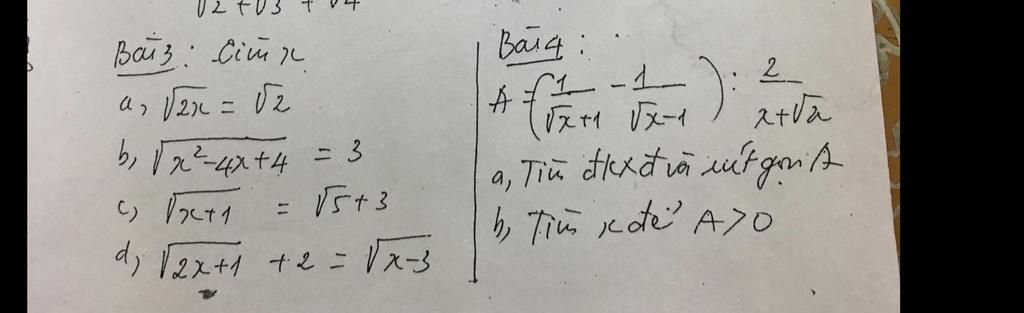 √2 + √3 + √4
Bài 3: Tìm x
a, √2x = √2
b, √x²-4x+4 = 3
c, √x+1 = √5+3
d, √2x+1 + 2 = √x-3
Bài 4:
A = (1/√x+1 - 1/√x-1) : 2/x+√x
a, Tìm đkxđ và rút gọn A
b, Tìm x để A>0